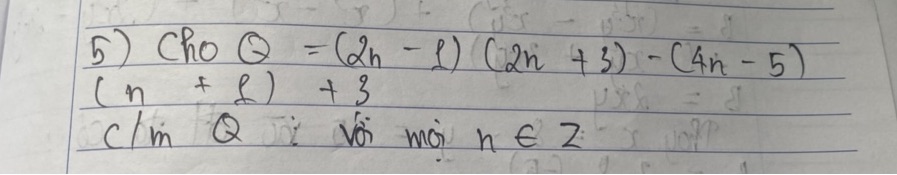 5) Cho Q = (2n - 1) (2n + 3) - (4n - 5)
(n + 1) + 3
c/m Q ⋮ với mọi n ∈ Z